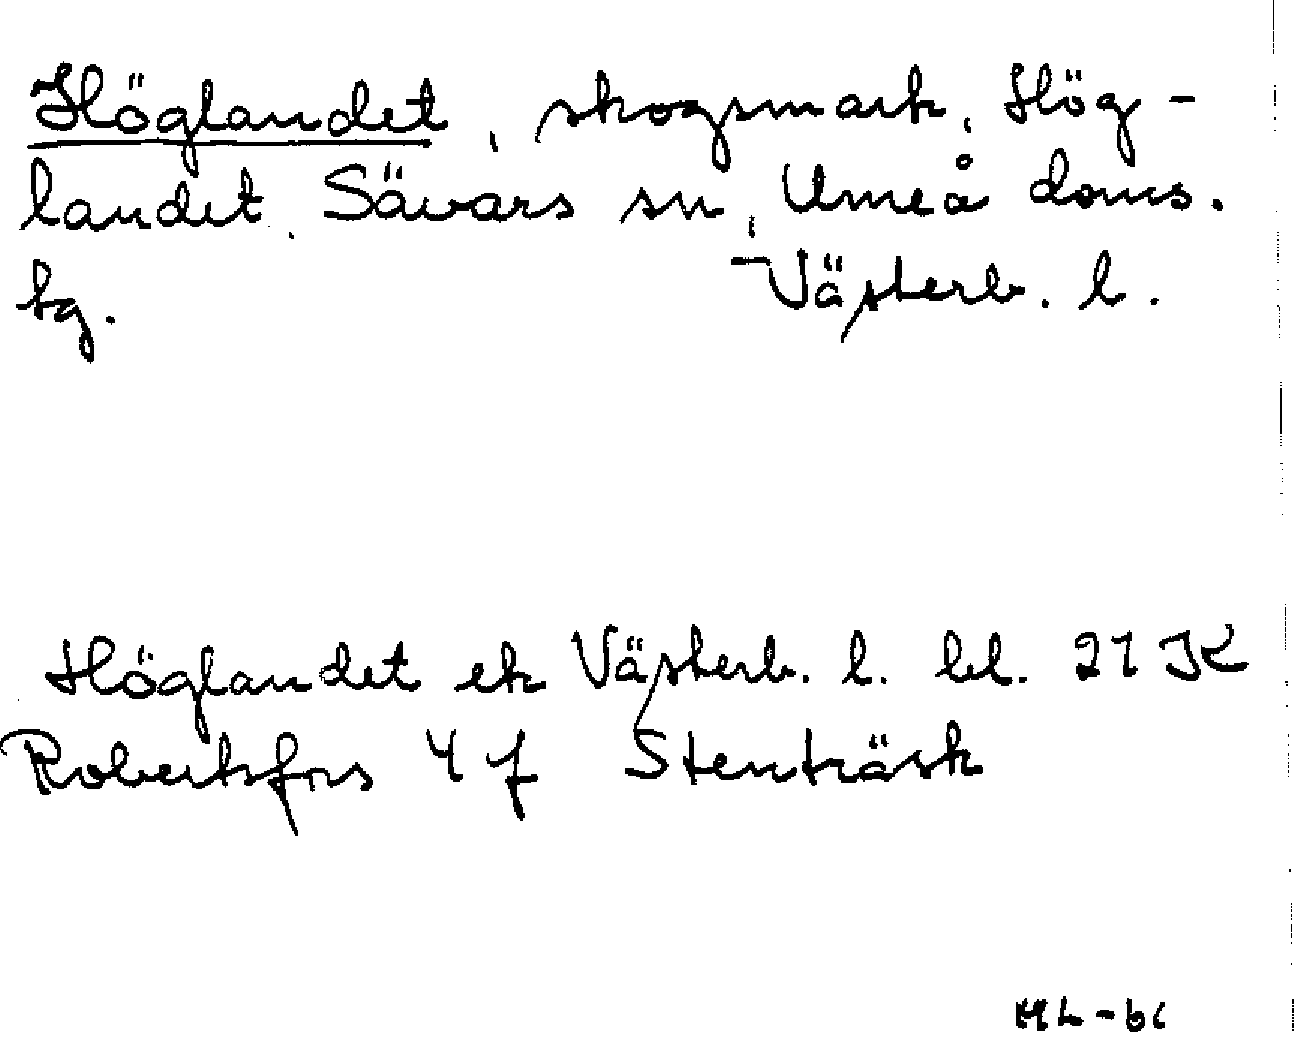 Höglandet, skogsmark, Hög-
landet, Sävars sn, Umeå doms.
tg. Västerb. l.
Höglandet ek Västerb. l. bl. 21 JK
Robertsfors 4 f Stenträsk